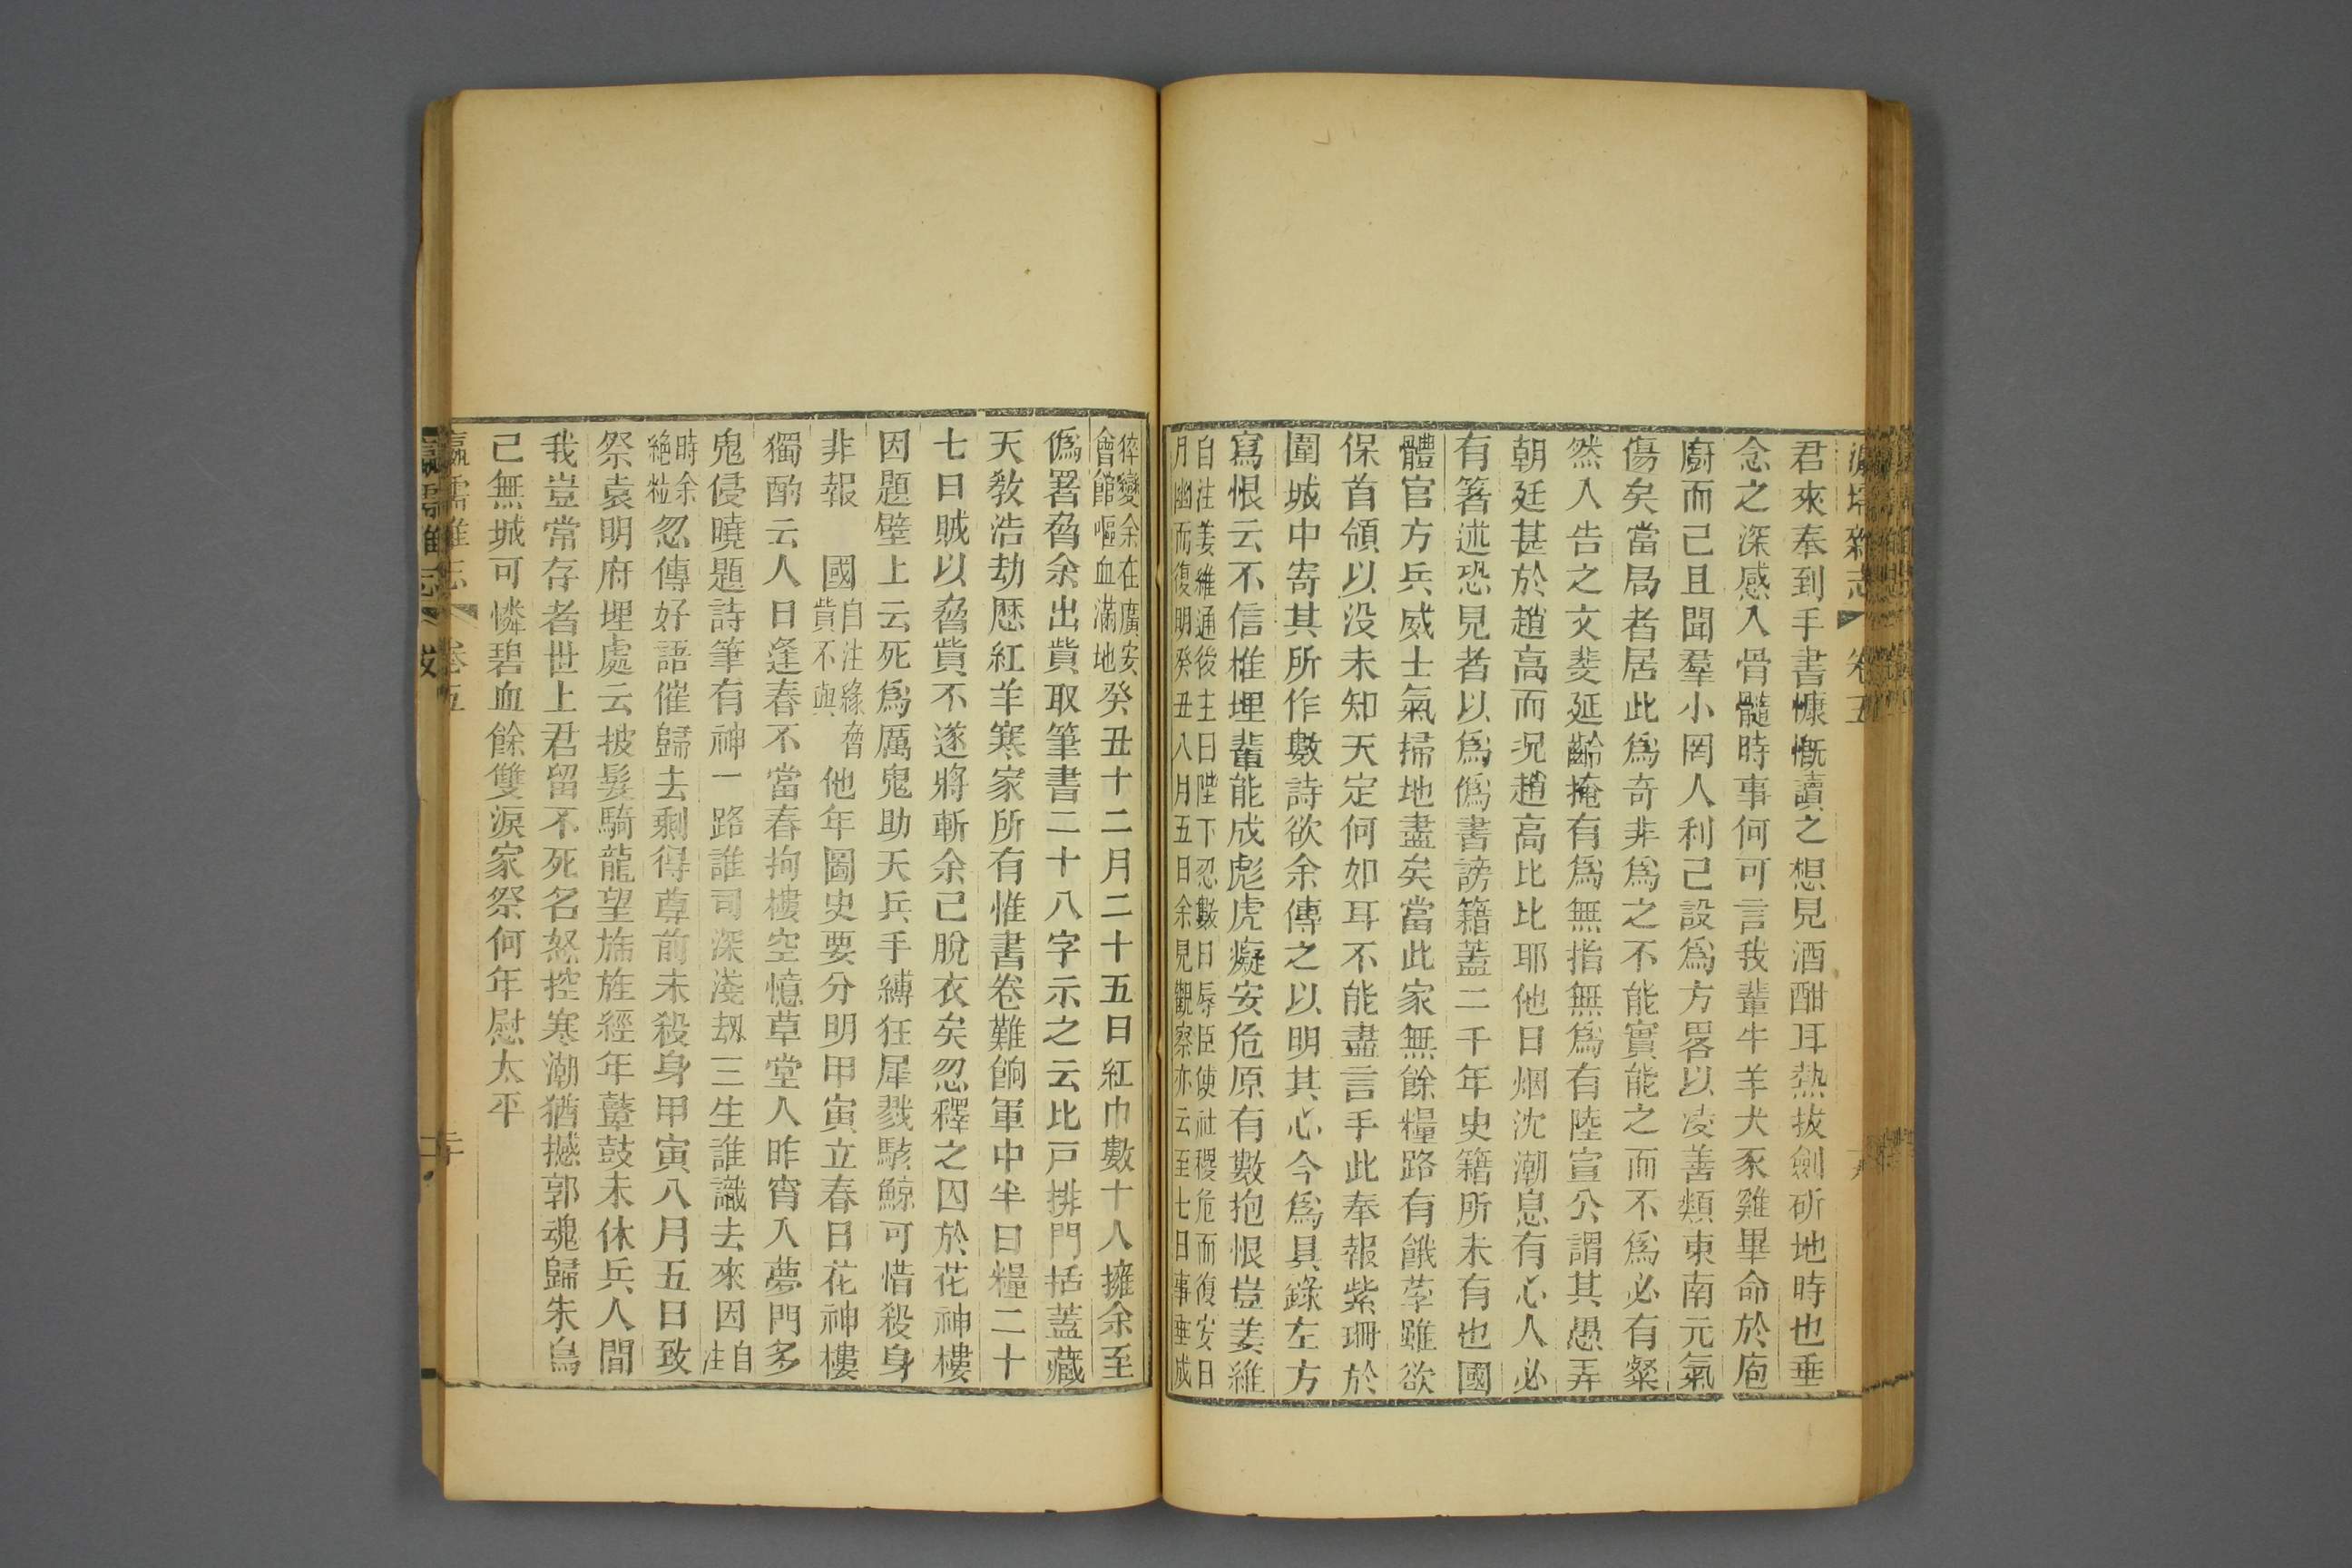 瀛壖雜志 卷五
君來奉到手書慷慨讀之想見酒酣耳熱拔劍斫地時也垂
念之深感入骨髓時事何可言我輩牛羊犬豕雞畢命於庖
廚而已且聞羣小罔人利己設爲方畧以凌善類東南元氣
傷矣當局者居此爲奇非爲之不能實能之而不爲必有粲
然入告之文斐延齡掩有爲無指無爲有陸宣公謂其愚弄
朝廷甚於趙高而况趙高比比耶他日烟沈潮息有心人必
有箸述恐見者以爲僞書謗籍蓋二千年史籍所未有也國
體官方兵威士氣掃地盡矣當此家無餘糧路有餓莩雖欲
保首領以没未知天定何如耳不能盡言手此奉報紫珊於
圍城中寄其所作數詩欲余傳之以明其心今爲具錄左方
寫恨云不信椎埋輩能成彪虎癡安危原有數抱恨豈姜維
自注姜維通後主曰陛下忍數日辱臣使社稷危而復安日
月幽而復明癸丑八月五日余見觀察亦云至七日事垂成
猝變余在廣安
會館嘔血滿地癸丑十二月二十五日紅巾數十人擁余至
僞署脅余出貲取筆書二十八字示之云比戸排門括蓋藏
天教浩劫歷紅羊寒家所有惟書卷難餉軍中半日糧二十
七日賊以脅貲不遂將斬余已脫衣矣忽釋之囚於花神樓
因題壁上云死爲厲鬼助天兵手縛狂犀戮駭鯨可惜殺身
非報 國自注緣脅
貲不與他年圖史要分明甲寅立春日花神樓
獨酌云人日逢春不當春拘樓空憶草堂人昨宵入夢門多
鬼侵曉題詩筆有神一路誰司深淺刼三生誰識去來因自
注
時余
絶粒忽傳好語催歸去剩得尊前未殺身甲寅八月五日致
祭袁明府埋處云披髮騎龍望旆旌經年鼙鼓未休兵人間
我豈常存者世上君留不死名怒控寒潮猶撼郭魂歸朱鳥
已無城可憐碧血餘雙淚家祭何年慰太平
瀛壖雜志 卷五 二十